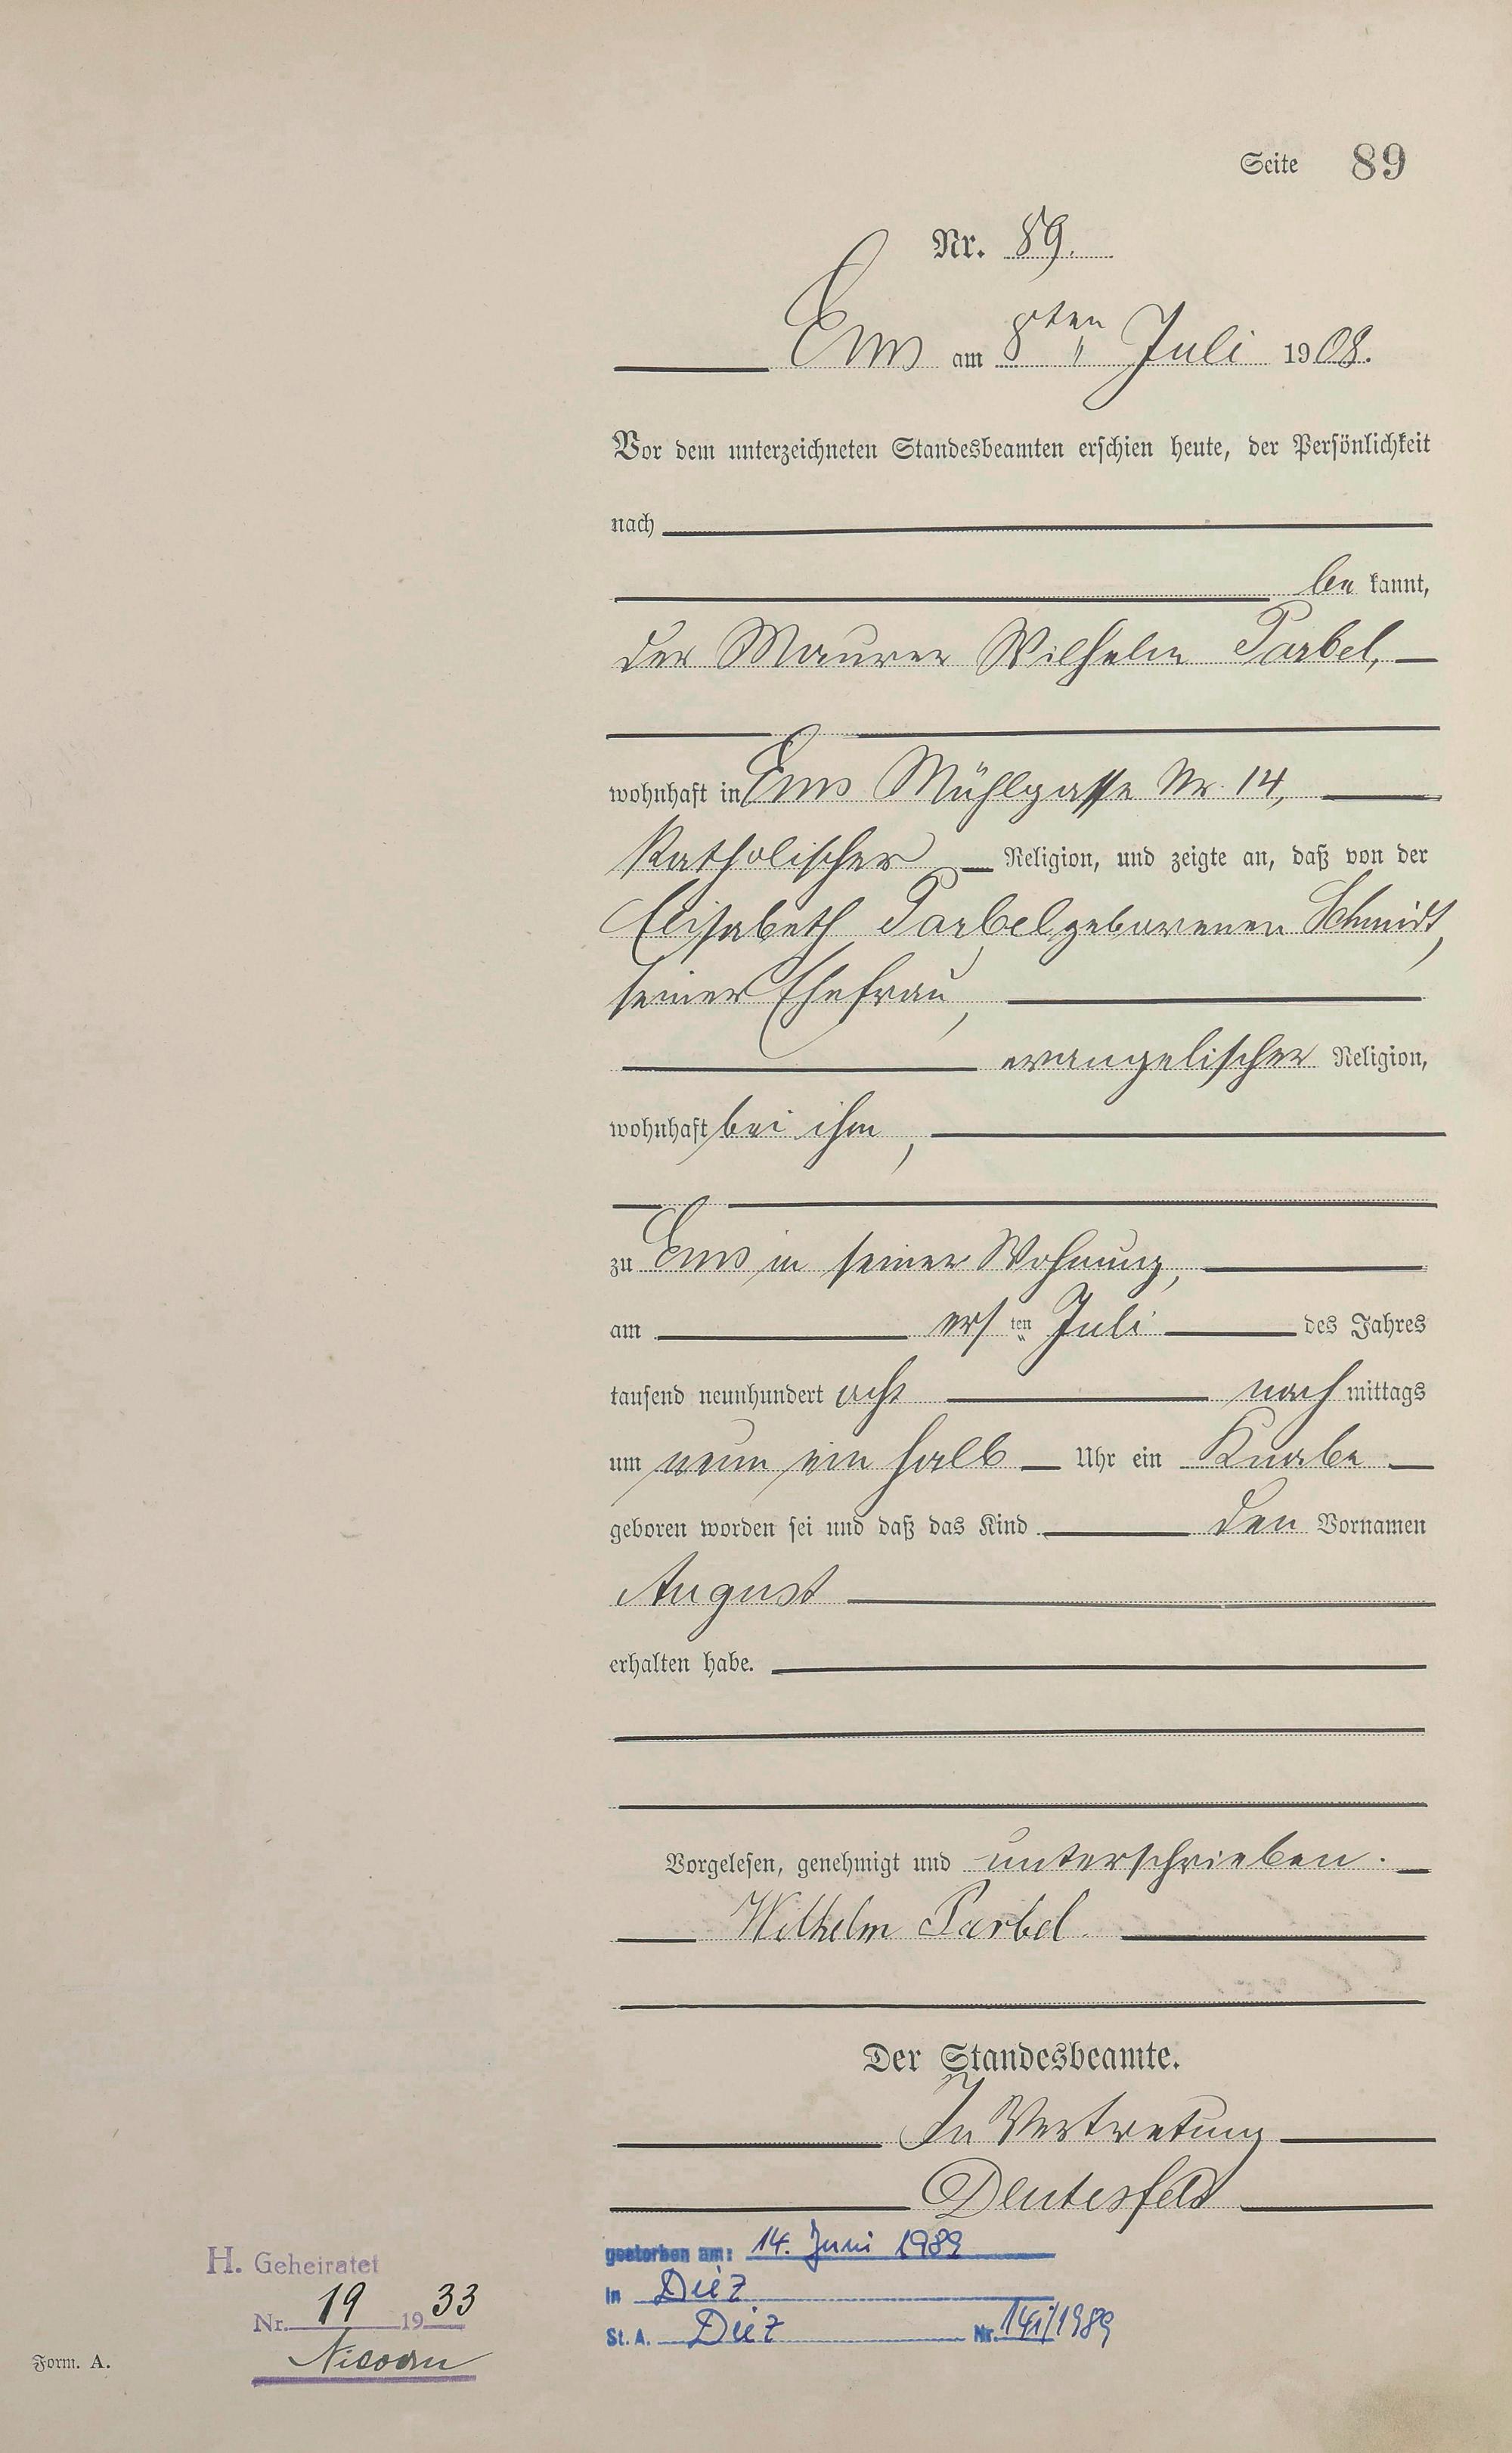 Seite 89
Nr. 89.
Ems am 8ten Juli 1908.
Vor dem unterzeichneten Standesbeamten erschien heute, der Persönlichkeit
nach
be kannt,
der Maurer Wilhelm Parbel,
wohnhaft in Ems Mühlgasse Nr. 14,
katholischer Religion, und zeigte an, daß von der
Elisabeth Parbel geborenen Schmidt,
seiner Ehefrau,
evangelischer Religion,
wohnhaft bei ihm,
zu Ems in seiner Wohnung,
am ersten Juli des Jahres
tausend neunhundert acht nach mittags
um neun ein halb Uhr ein Knabe
geboren worden sei und daß das Kind den Vornamen
August
erhalten habe.
Vorgelesen, genehmigt und unterschrieben.
Wilhelm Parbel.
Der Standesbeamte.
In Vertretung
gestorben am: 14. Juni 1989
in Diez
St. A. Diez Nr. 141/1989
H. Geheiratet
Nr. 19 1933
Form. A.